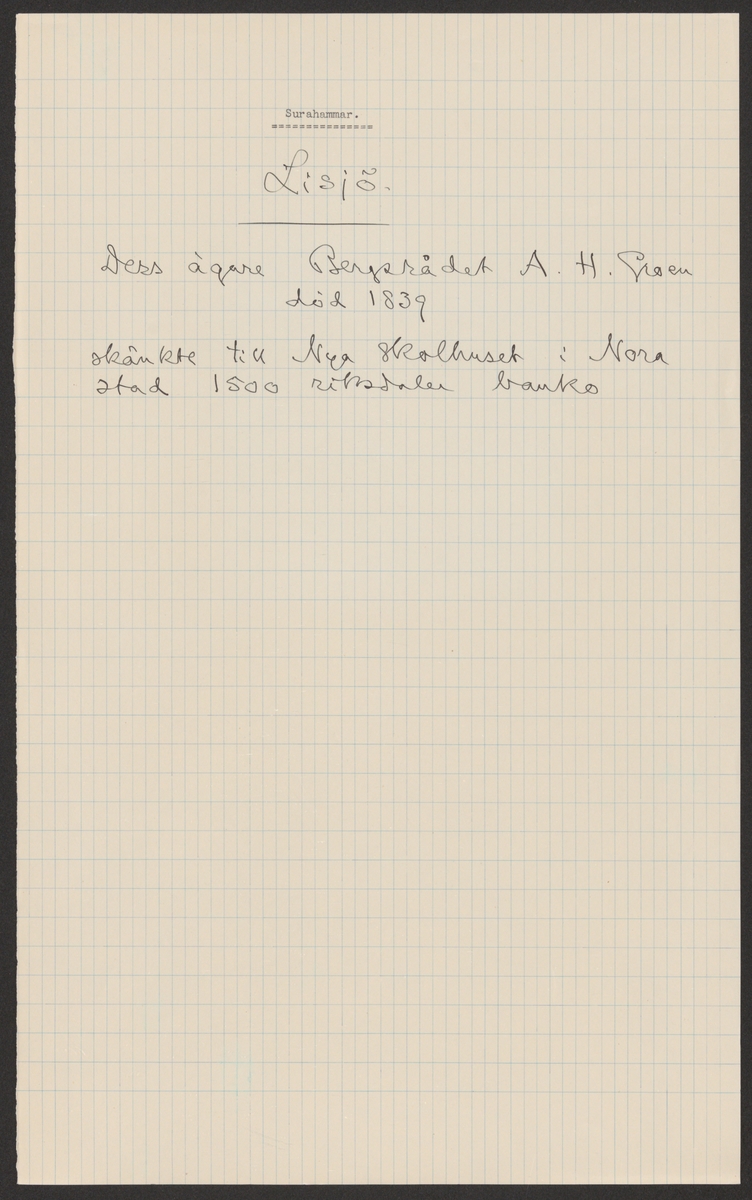 Surahammar.
===============
Lisjö.
Dess ägare Bergsrådet A. H. Groen
död 1839
skänkte till Nya Skolhuset i Nora
stad 1500 riksdaler banko